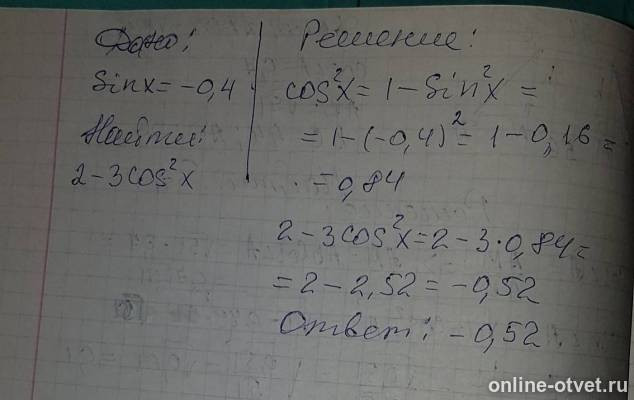 Дано:
Sinx = -0,4
Найти:
2-3cos²x
Решение:
cos²x = 1 - Sin²x =
= 1-(-0,4)² = 1-0,16 =
= 0,84
2-3cos²x = 2-3·0,84 =
= 2-2,52 = -0,52
Ответ: -0,52.
online-otvet.ru